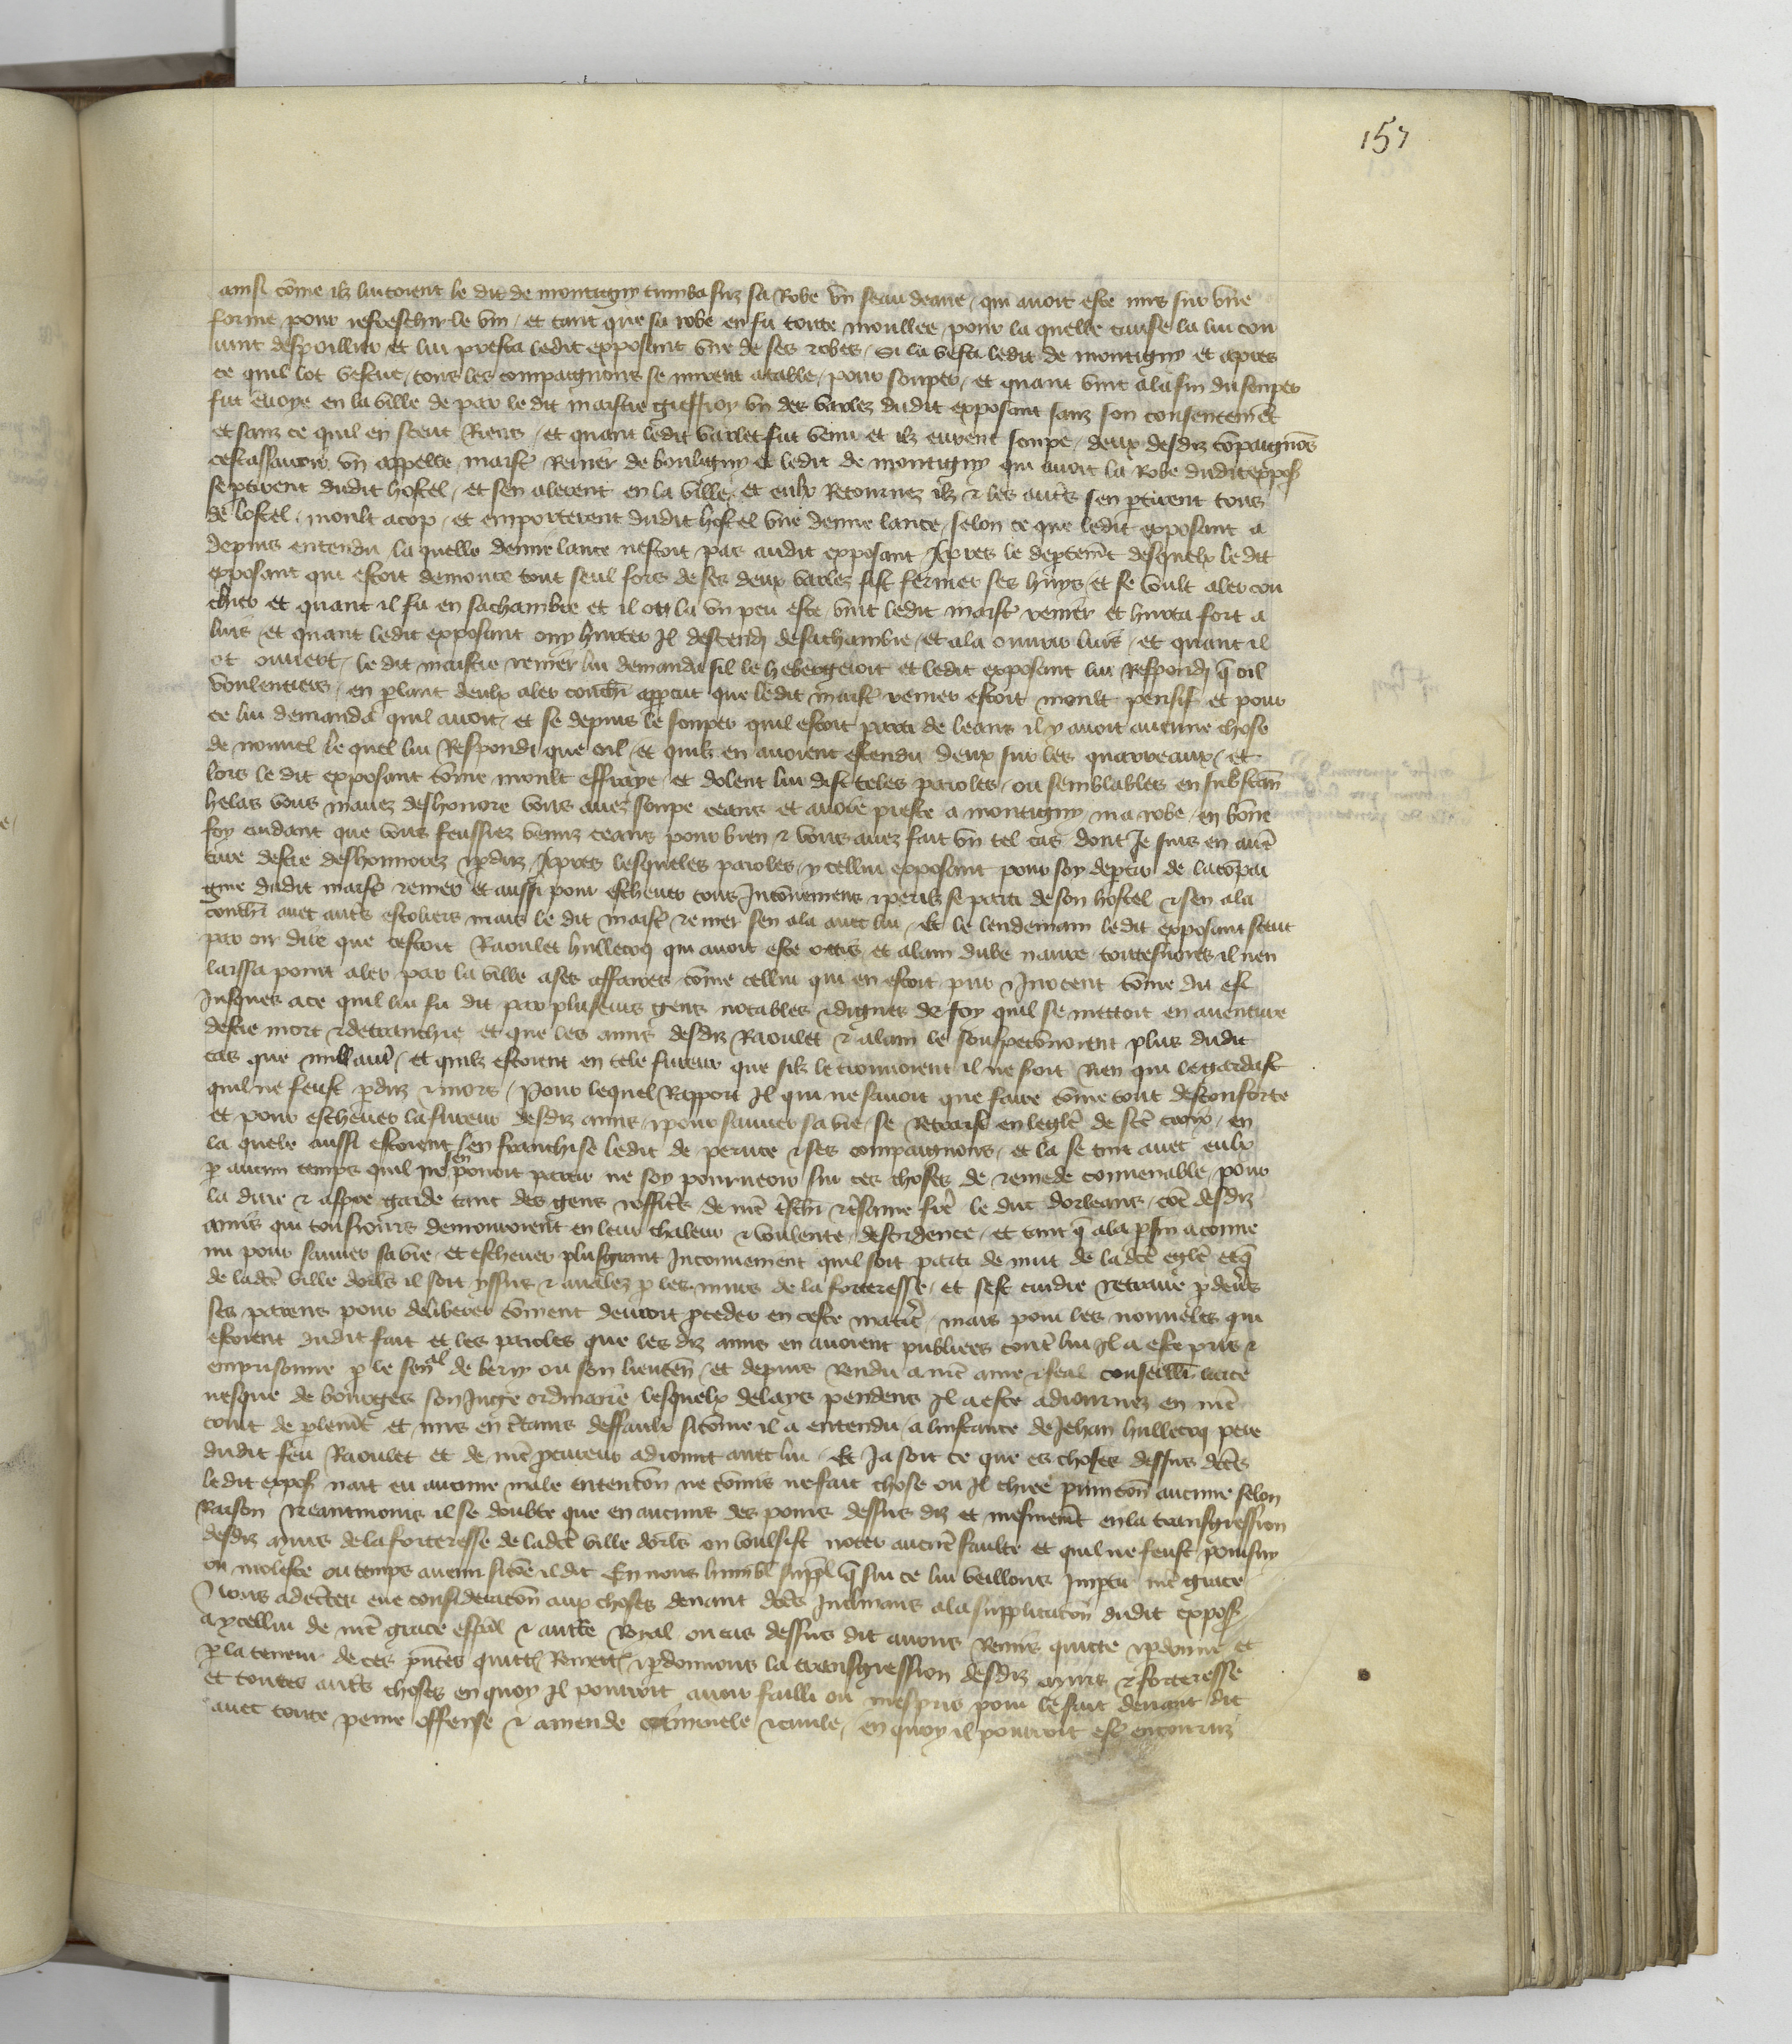 157
ainsi cōme ilz luitoient le dit de montigny tumba suz sa Robe vn seau deaue / qui auoit este mis sur vne
forme / pour refreschir le vin / et tant que sa robe en fu toute moullee / pour la quelle cause la lui con
uint despoillier et lui presta ledit exposant vne de ses robes / Si la vesti ledit de montigny et apres
ce quil lot vestue / tous les compaignons se mirent a table / pour souper / et quant vint a la fin du souper
fut ēuoye en la ville de par le dit maistre Gieffroy vn des varlez dudit exposant sanz son consentemēt
et sanz ce quil en sceut Riens / et quant ledit varlet fut venu et ilz eurent soupe / deux desdiz cōpaignōs
cestassauoir vn appelle maist Renier de bouligny et ledit de montigny qui auoit la Robe dudit exposᵗ
se ptirent dudit hostel / et sen alerent en la ville / et eulx Retournez ilz & les autˢ sen ptirent tous
de lostel / moult acop / et emporterent dudit hostel vne demie lance / selon ce que ledit exposant a
depuis entendu la quelle demie lance nestoit pas audit exposant / Apres le deptemēt desquelx le dit
exposant qui estoit demoure tout seul fors de ses deux varlez fist fermer ses huys / et se voult aler cou
chier et quant il fu en sa chambre et il ot la vn peu este vint ledit maist renier et hurta fort a
luis / et quant ledit exposant ouy hurter Il descendi de sa chambre / et ala ouurir luis / et quant il
ot ouuert / le dit maistre renier lui demanda sil le hebergeroit et ledit exposant lui Respondi q̄ oil
voulentiers / en plant deulx aler couchī appcut que ledit maist renier estoit moult pensif et pour
ce lui demanda quil auoit / et se depuis le souper quil estoit parti de leans il y auoit aucune chose
de nouuel le quel lui Respondi que oil / et quilz en auoient estendu deux sur les quarreaux / et
lors le dit exposant cōme moult effraye et dolent lui dist teles paroles / ou semblables en substanc̄
helas vous mauez deshonore vous auez soupe ceans et auoie preste a montigny ma robe / en bōne
foy cuidant que vous feussiez venuz ceans pour bien & vous auez fait vn tel cas dont Je suis en auē
ture destre deshonnorez & pduz / Apres lesqueles paroles / ycellui exposant pour soy deptir de la cōpai
gnie dudit maist renier et aussi pour escheuer tous Incōuenienx & perilz se parti de son hostel & sen ala
couchī auec autˢ escoliers mais le dit maist renier sen ala auec lui / Et le lendemain ledit exposant sceut
par oir dire que cestoit Raoulet hullecoq qui auoit este occis / et alain dube naure / toutesuoies il nen
laissa point aler par la ville a ses affaires / cōme cellui qui en estoit pur & Inocent cōme dit est
Jusques a ce quil lui fu dit par pluseurs gens notables & dignes de foy quil se mettoit en auenture
destre mort & detranchie et que les amis desdiz Raoulet & alain le souspeconnoient plus dudit
cas que nul aut / et quilz estoient en tele fureur que silz le trouuoient il ne seroit Rien qui le gardast
quil ne feust pduz & mors / Pour lequel Rapport Il qui ne sauoit que faire cōme tout desconforte
et pour escheuer la fureur desdiz amis / & pour sauuer sa vie / se Retraist en leglē de sctē croix / en
la quele aussi estoient en franchise ledit de peruce & ses compaignons / et la se tint auec eulx
p aucun temps quil ne sen pouoit partir ne soy pourueoir sur ces choses de remede conuenable / pour
la dure & aspre garde tant des gens & officīs de nrē trēschi & tresame frē le duc dorleans / cōe desdiz
amis qui tousiours demouroient en leur chaleur & voulente desordence / et tant q̄ a la pfin a conue
nu pour sauuer sa vie / et escheuer plus grant Inconuenient quil soit parti de nuit de ladcē eglē et q̄
de ladcē ville dorls il soit yssus & aualez p les murs de la forteresse / et sest cuidie retraire p deuˢ
ses parens pour deliberer cōment deuroit proceder en ceste matiē / mais pour les nouueles qui
estoient dudit fait et les paroles que les diz amis en auoient publiees contē lui Il a este pris &
emprisonne p le senal de berry ou son lieutent / et depuis Rendu a nrē ame & feal conseillī larce
uesque de bourges son Juge ordinaire lesquelx delays pendens Il a este adiournez en nrē
court de plemēt et mis en ctains deffaulx si cōme il a entendu / a linstance de Jehan hullecoq pere
dudit feu Raoulet et de nrē pcureur adioinct auec lui / Et Ja soit ce que es choses dessus dcēs
ledit exposᵗ nait eu aucune male entencōn ne cōmis ne fait chose ou Il chiee punicōn aucune selon
Raison Neantmoins il se doubte que en aucuns des poins dessus diz et mesmemēt en la transgression
desdiz murs de la forteresse de ladcē ville dorls on voulsist noter aucunē faulte et quil ne feust poursuy
ou moleste ou temps auenir si cōe il dit En nous humblt supplt q̄ sur ce lui veillons Impti nrē grace
Nous adecˢ eue consideracōn aux choses deuant dcēs Inclinans a la supplicacōn dudit exposᵗ /
a ycellui de nrē grace espāl & auctē Royal ou cas dessus dit auons Remis quicte & pdonne et
p la teneur de ces pntēs quittˢ Remettˢ & pdonnons la transgression desdiz murs & forteresse
et toutes autˢ choses en quoy Il pourroit auoir failli ou mespris pour le fait deuant dit
auec toute peine offense & amende criminele & ciuile / en quoy il pourroit estre encouruz